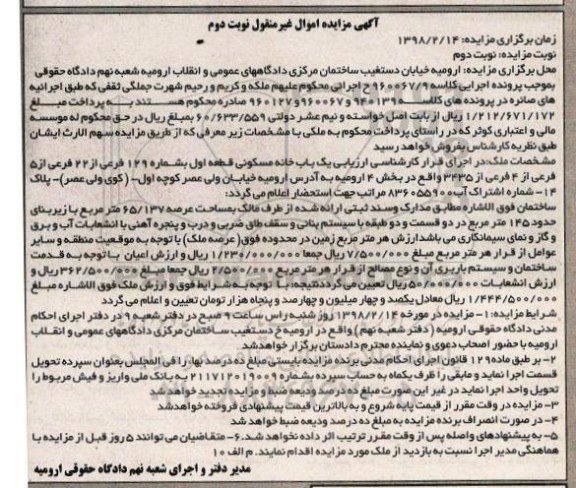 آگهی مزایده اموال غیرمنقول نوبت دوم
زمان برگزاری مزایده: ۱۳۹۸/۲/۱۴
نوبت مزایده: نوبت دوم
محل برگزاری مزایده: ارومیه خیابان دستغیب ساختمان مرکزی دادگاههای عمومی و انقلاب ارومیه شعبه نهم دادگاه حقوقی
بموجب پرونده اجرایی کلاسه ۹۶۰۰۶۷/۹ج اجرائی محکوم علیهم ملکه و کریم و رحیم شهرت جملگی ثقفی که طبق اجرائیه
های صادره در پرونده های کلاسه ۹۴۰۱۳۹ و ۹۶۰۰۶۷ و ۹۶۰۱۲۷ صادره محکوم هستند به پرداخت مبلغ
۱/۲۱۲/۶۷۱/۱۷۲ ریال از بابت اصل خواسته و نیم عشر دولتی ۶۰/۶۳۳/۵۵۹ بمبلغ ریال در حق محکوم له موسسه
مالی و اعتباری کوثر که در راستای پرداخت محکوم به ملکی با مشخصات زیر معرفی که از طریق مزایده سهم الارث ایشان
طبق نظریه کارشناس بفروش خواهد رسید
مشخصات ملک: در اجرای قرار کارشناسی ارزیابی یک باب خانه مسکونی قطعه اول بشماره ۱۲۹ فرعی از ۲۲ فرعی از ۵
فرعی از ۴ فرعی از ۳۴۳۵ واقع در بخش ۴ ارومیه به آدرس ارومیه خیابان ولی عصر کوچه اول- (کوی ولی عصر)- پلاک
۱۴- شماره اشتراک آب ۸۳۶۰۵۵۹۰۰ مراتب جهت استحضار اعلام می گردد:
ساختمان فوق الاشاره مطابق مدارک وسند ثبتی ارائه شده از طرف مالک بمساحت عرصه ۶۵/۱۳۷ متر مربع با زیربنای
حدود ۱۴۵ متر مربع در دو قسمت و دو طبقه با سیستم بنائی و سقف طاق ضربی و درب و پنجره آهنی با انشعابات آب و برق
و گاز و نمای سیمانکاری می باشد ارزش هر متر مربع زمین در محدوده فوق( عرصه ملک) با توجه به موقعیت منطقه و سایر
عوامل از قرار هر متر مربع مبلغ ۷/۵۰۰/۰۰۰ ریال جمعا ۱/۲۳۰/۰۰۰/۰۰۰ ریال و ارزش اعیان با توجه به قدمت
ساختمان و سیستم باربری آن و نوع مصالح از قرار هر متر مربع ۲/۵۰۰/۰۰۰ ریال جمعا مبلغ ۳۶۲/۵۰۰/۰۰۰ ریال و
ارزش انشعابات ۵۰/۰۰۰/۰۰۰ ریال تعیین می گردد نتیجه با توجه به شرایط فوق و ارزش ملک فوق الاشاره مبلغ
۱/۴۴۴/۵۰۰/۰۰۰ ریال معادل یکصد و چهار میلیون و چهارصد و پنجاه هزار تومان تعیین و اعلام می گردد
شرایط مزایده: ۱- مزایده در مورخه ۱۳۹۸/۲/۱۴ روز شنبه راس ساعت ۹ صبح در دفتر شعبه ۹ در دفتر اجرای احکام
مدنی دادگاه حقوقی ارومیه ( دفتر شعبه نهم) واقع در ارومیه خ دستغیب ساختمان مرکزی دادگاههای عمومی و انقلاب
ارومیه با حضور اصحاب دعوی و نماینده محترم دادستان برگزار خواهد شد
۲- بر طبق ماده ۱۲۹ قانون اجرای احکام مدنی برنده مزایده بایستی مبلغ ده درصد بهارا فی المجلس بعنوان سپرده تحویل
قسمت اجرا نماید و مابقی را ظرف یکماه به حساب سپرده بشماره ۲۱۷۱۲۰۱۹۰۰۹ به بانک ملی واریز و فیش مربوط را
تحویل واحد اجرا نماید در غیر این صورت مبلغ ده درصد ودیعه ضبط و مزایده تجدید خواهد شد
۳- مزایده در وقت مقرر از قیمت پایه شروع و به بالاترین قیمت پیشنهادی فروخته خواهد شد
۴- در صورت انصراف برنده مزایده به مبلغ ده درصد ودیعه ضبط خواهد شد
۵- به پیشنهادهای واصله پس از وقت مقرر ترتیب اثر داده نخواهد شد. ۶- متقاضیان می توانند ۵ روز قبل از مزایده با
هماهنگی مدیر اجرا نسبت به بازدید از ملک مورد مزایده اقدام نمایند. م الف ۱۰
مدیر دفتر و اجرای شعبه نهم دادگاه حقوقی ارومیه